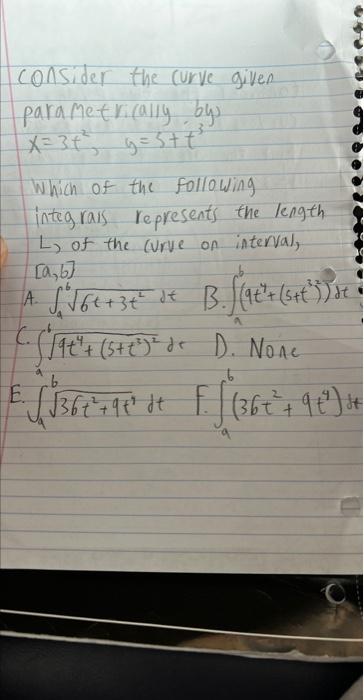 consider the curve given
parametrically by,
x=3t², y=5+t³
Which of the following
integrals represents the length
L, of the curve on interval,
[a,b]
A. ∫ₐᵇ √(6t+3t²) dt B. ∫ₐᵇ (9t⁴+(5+t³)²) dt
C. ∫ₐᵇ √(9t⁴+(5+t³)²) dt D. None
E. ∫ₐᵇ √(36t²+9t⁴) dt F. ∫ₐᵇ (36t²+9t⁴) dt